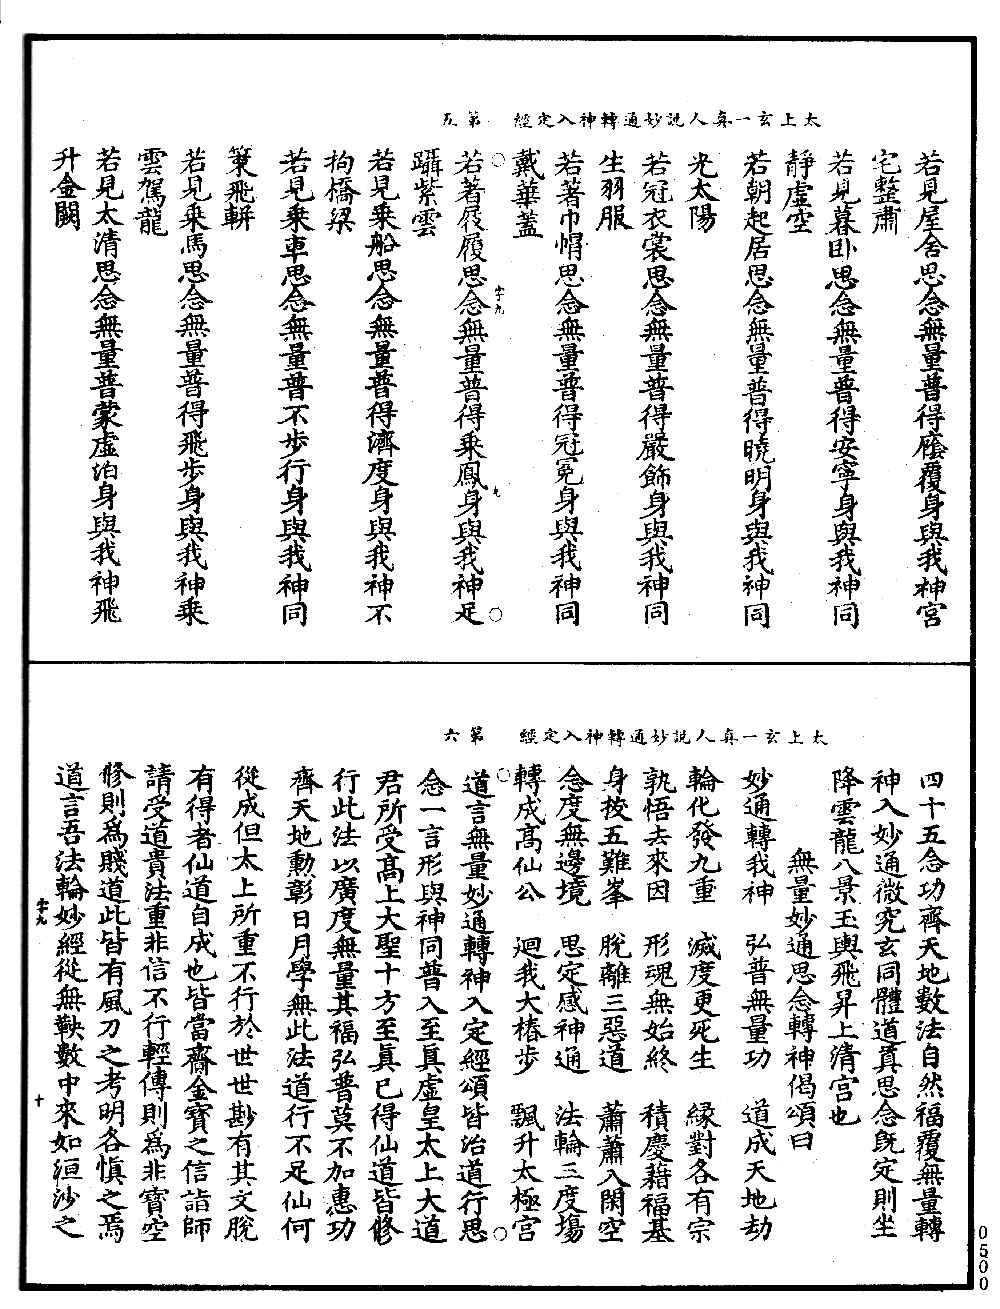 太上玄一真人說妙通轉神入定經　第五
若見屋舍思念無量普得廕覆身與我神宮
宅整肅
若見暮卧思念無量普得安寧身與我神同
靜虛空
若朝起居思念無量普得曉明身與我神同
光太陽
若冠衣裳思念無量普得嚴飾身與我神同
生羽服
若著巾帽思念無量普得冠冕身與我神同
戴華蓋
若著屐履思念無量普得乘鳳身與我神足
字九
九
躡紫雲
若見乘船思念無量普得濟度身與我神不
拘橋梁
若見乘車思念無量普不步行身與我神同
策飛軿
若見乘馬思念無量普得飛步身與我神乘
雲駕龍
若見太清思念無量普蒙虛泊身與我神飛
升金闕
太上玄一真人說妙通轉神入定經　第六
四十五念功齊天地數法自然福覆無量轉
神入妙通微究玄同體道真思念既定則坐
降雲龍八景玉輿飛昇上清宮也
無量妙通思念轉神偈頌曰
妙通轉我神　弘普無量功　道成天地劫
輪化發九重　滅度更死生　緣對各有宗
孰悟去來因　形魂無始終　積慶藉福基
身拔五難峯　脫離三惡道　蕭蕭入閑空
念度無邊境　思定感神通　法輪三度塲
轉成高仙公　迴我大椿步　飄升太極宮
道言無量妙通轉神入定經頌皆治道行思
念一言形與神同普入至真虛皇太上大道
君所受高上大聖十方至真已得仙道皆修
行此法以廣度無量其福弘普莫不加惠功
齊天地勳彰日月學無此法道行不足仙何
從成但太上所重不行於世世尠有其文脫
有得者仙道自成也皆當齎金寶之信詣師
請受道貴法重非信不行輕傳則為非寶空
修則為賤道此皆有風刀之考明各慎之焉
道言吾法輪妙經從無鞅數中來如洹沙之
字九
十
0500